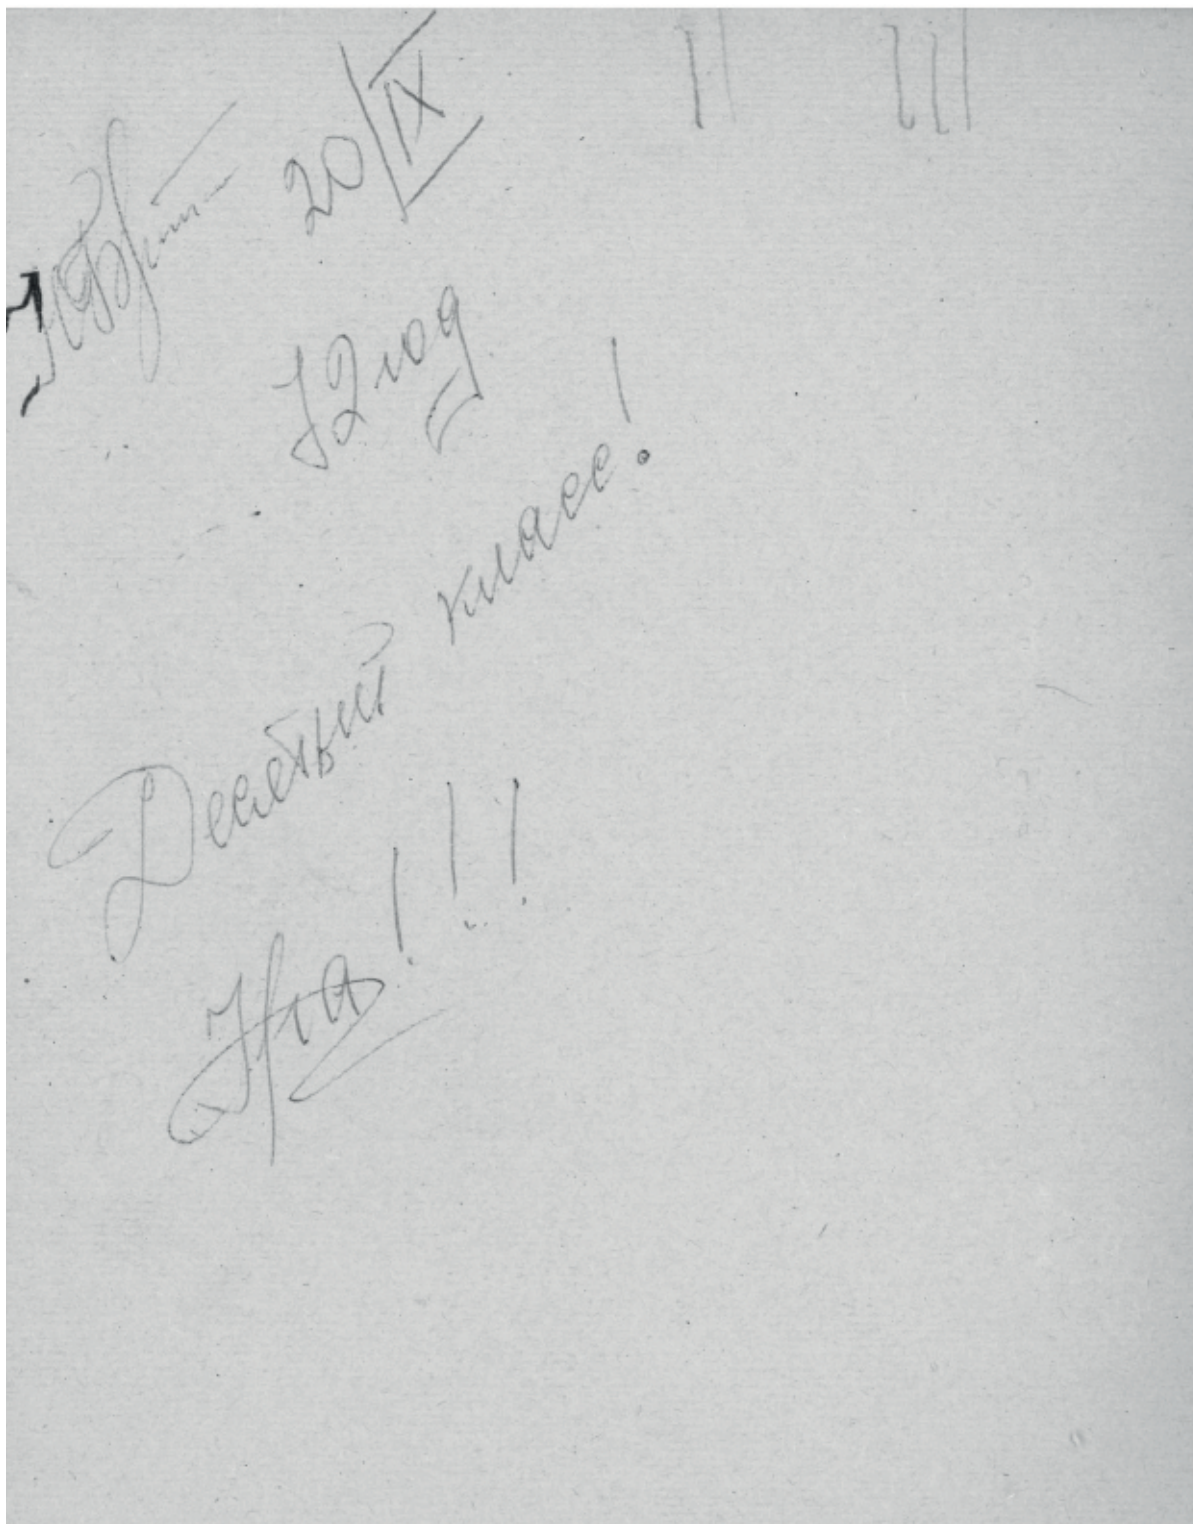 20/IX
72 год
Десятый класс!
!!!